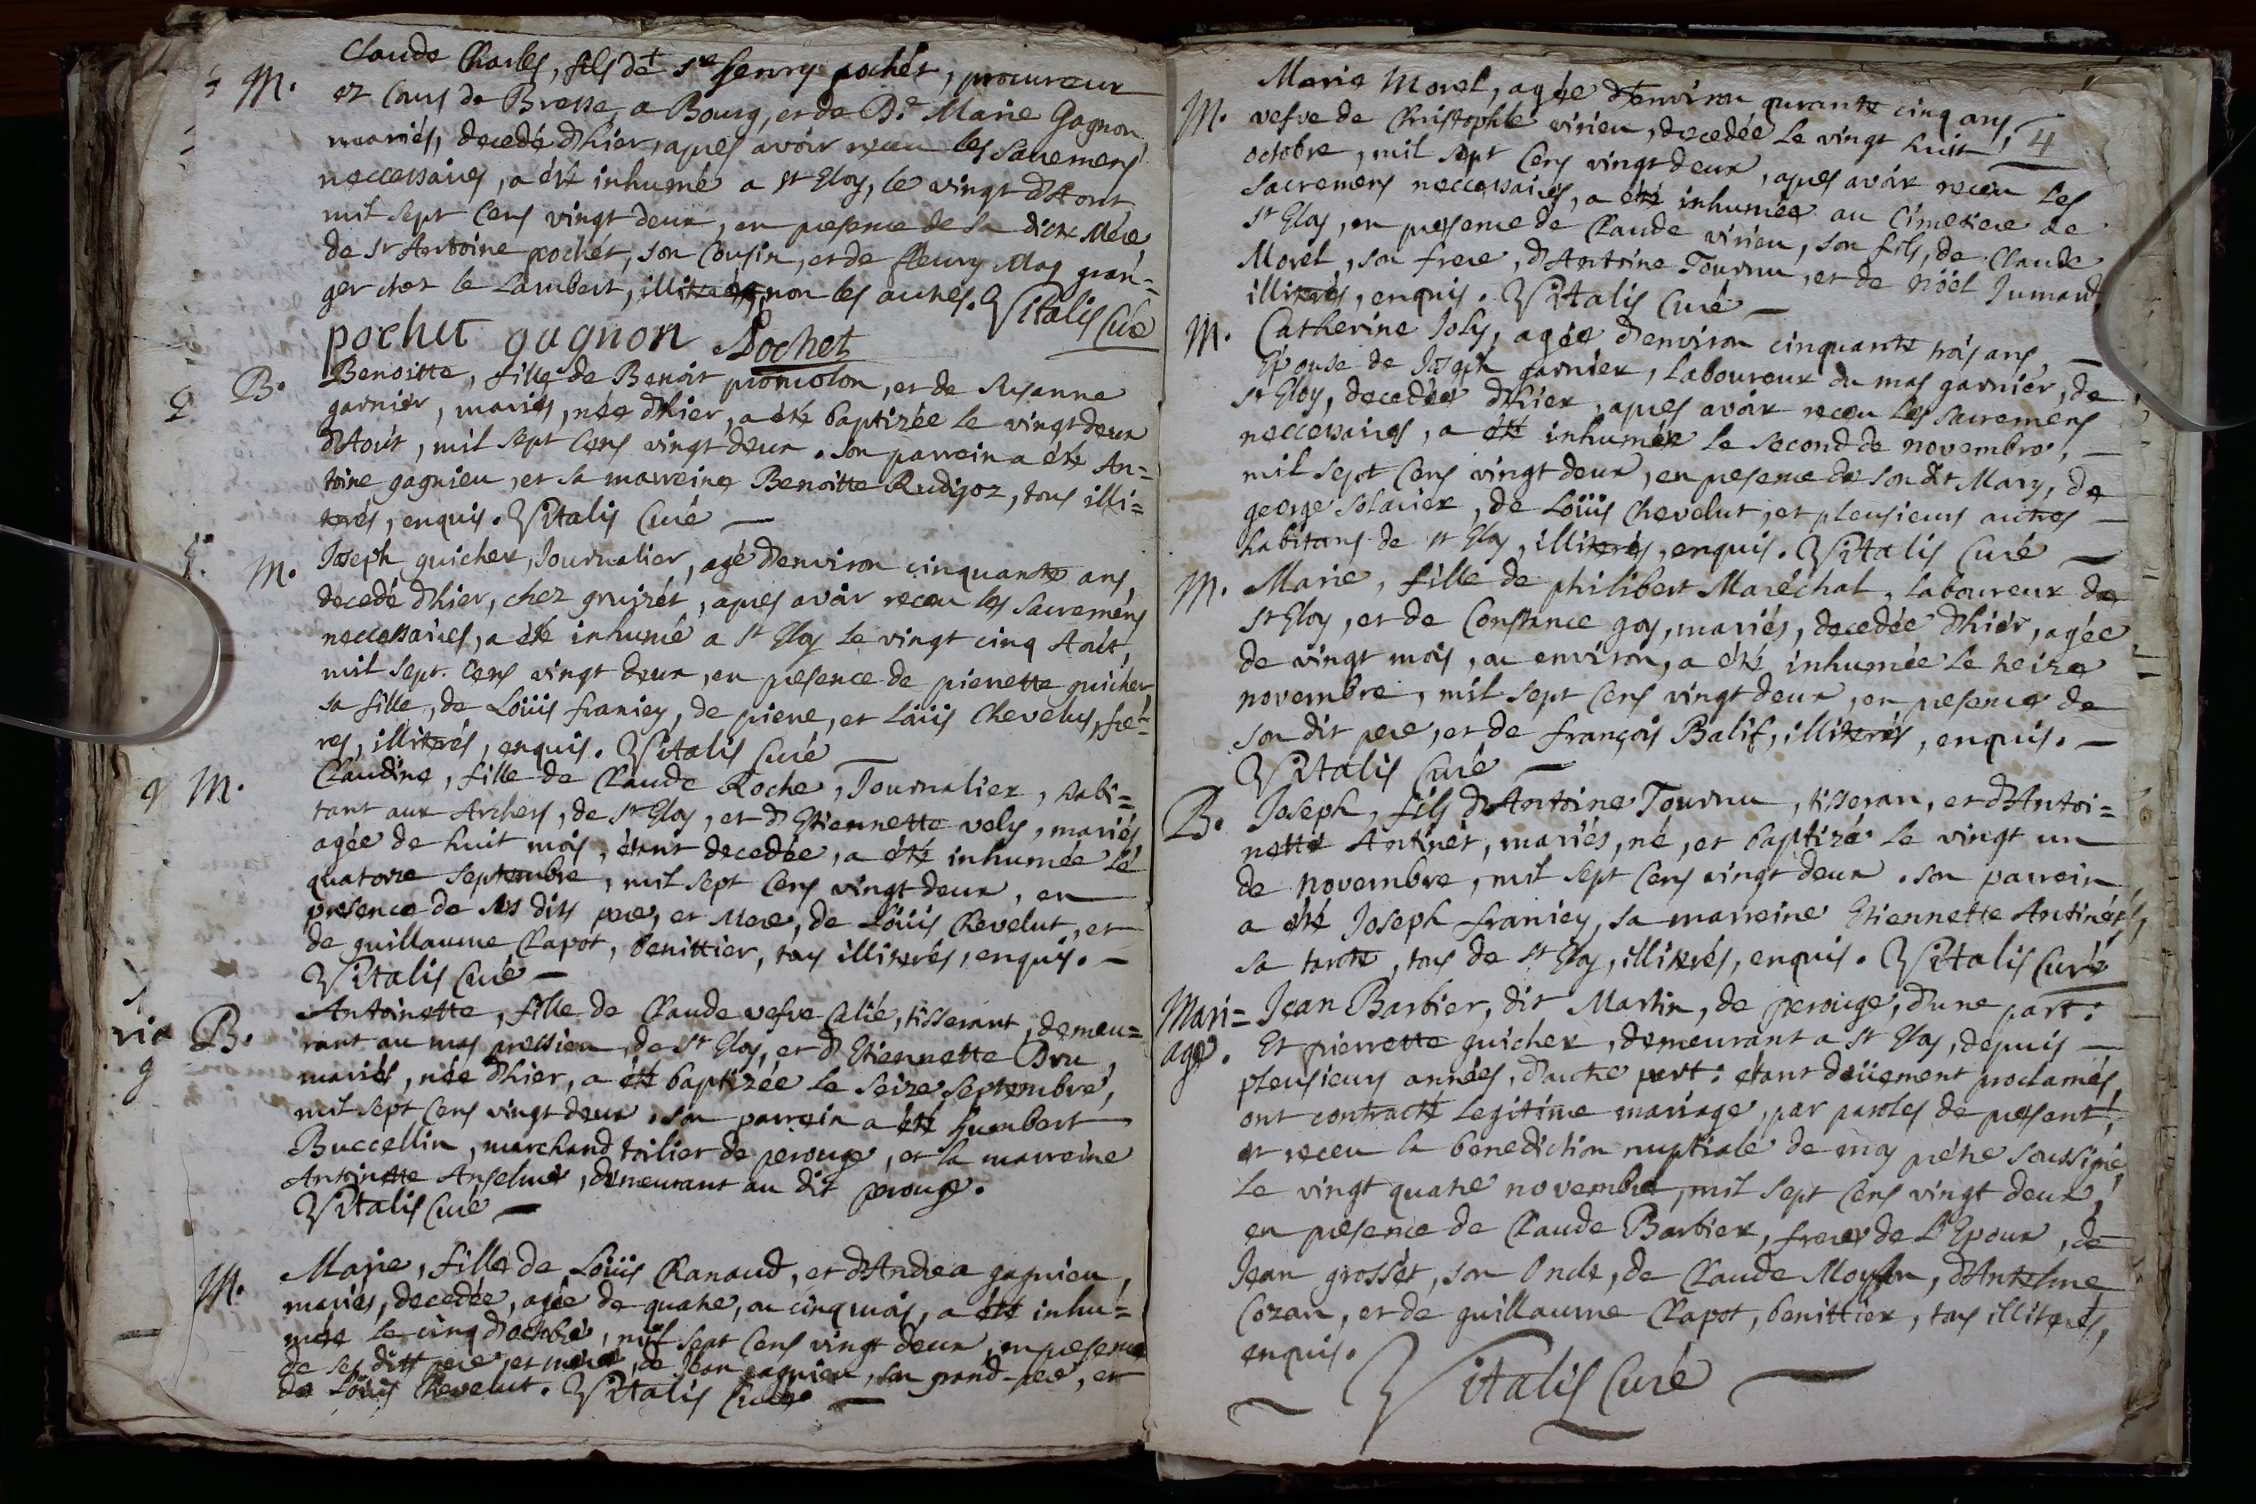 M. Claude Charles, fils de Sr henry pochet, procureur
ez Cours de Bresse, a Bourg, et de De Marie Gagnon,
mariés, decedé d'hier, apres avoir receu les Sacremens
neccessaires, a été inhumé a St Eloy, le vingt d'Aout
mil sept Cens vingt deux, en presence de sa dicte Mere
de Sr Antoine pochet, son Cousin, et de fleury Mas gran=
ger chez le Lambert, illiteré, non les autres. Vitalis Curé
pochet gagnon Pochet
B. Benoitte, fille de Benoit promolon, et de Susanne
garnier, mariés, née d'hier, a été baptizée le vingt deux
d'Aout, mil sept Cens vingt deux. son parrein a été An=
toine gagnieu, et sa marreine Benoitte Rudigoz, tous illi=
terés, enquis. Vitalis Curé
M. Joseph guicher, Journalier, agé d'environ cinquante ans,
decedé d'hier, chez gruizét, apres avoir receu les Sacremens
neccessaires, a été inhumé a St Eloy le vingt cinq Août,
mil sept Cens vingt deux, en presence de pierrette guicher
sa fille, de Loüis franiey, de pierre, et Loüis Chevelus, fré=
res, illiterés, enquis. Vitalis Curé
M. Claudine, fille de Claude Roche, Journalier, habi=
tant aux Archers, de St Eloy, et d'Etiennette vely, mariés
agée de huit mois, étant decedée, a été inhumée Le
quatorze Septembre, mil sept Cens vingt deux, en
presence de ses dits pere, et Mere, de Loüis Chevelut, et
de guillaume Clapot, benittier, tous illiterés, enquis.
Vitalis Curé
B. Antoinette, fille de Claude vefve Calié, tisserant, demeu=
rant au mas pressieu, de St Eloy, et d'Etiennette Bru,
mariés, née d'hier, a été baptizée le seize Septembre,
mil sept Cens vingt deux. son parrein a été humbert
Buccellin, marchand toilier de perouge, et sa marreine
Antoinette Anselme, demeurant au dit perouge.
Vitalis Curé
M. Marie, fille de Loüis Chanaud, et d'Andrea gagnieu,
mariés, decedée, agée de quatre, ou cinq mois, a été inhu=
mée le cinq d'octobre, mil sept Cens vingt deux, en presence
de ses ditt pere, et mere, de Jean gagnieu, son grand-pere, et
de Loüis Chevelut. Vitalis Curé
4
M. Marie Morel, agée d'environ qurante cinq ans,
vefve de Christophle virieu, decedée Le vingt huit
octobre, mil sept Cens vingt deux, apres avoir receu Les
Sacremens neccessaires, a été inhumée au Cimetiere de
St Eloy, en presence de Claude virieu, son fils, de Claude
Morel, son frere, d'Antoine Tournu, et de Nöel Jumaud,
illiterés, enquis. Vitalis Curé
M. Catherine Joly, agée d'environ cinquante trois ans,
Epouse de Joseph garnier, Laboureur du mas garnier, de
St Eloy, decedée d'hier, apres avoir receu Les Sacremens
neccessaires, a été inhumée le second de novembre,
mil sept Cens vingt deux, en presence de son dit Mary, de
george Solavier, de Loüis Chevelut, et plusieurs autres
habitans de St Eloy, illiterés, enquis. Vitalis Curé
M. Marie, fille de philibert Maréchal, Laboureur de
St Eloy, et de Constance goy, mariés, decedée d'hier, agée
de vingt mois, ou environ, a été inhumée Le treize
novembre, mil sept Cens vingt deux, en presence de
son dit pere, et de françois Balif, illiterés, enquis.
Vitalis Curé
B. Joseph, fils d'Antoine Tournu, tisseran, et d'Antoi=
nette Antinét, mariés, né, et baptizé Le vingt un
de novembre, mil sept Cens vingt deux. son parrein
a été Joseph franiey, sa marreine Etiennette Antinét,
sa tante, tous de St Eloy, illiterés, enquis. Vitalis Curé
Mari= Jean Barbier, dit Martin, de perouge, d'une part:
age. Et pierrette guicher, demeurant a St Eloy, depuis
plusieurs années, d'autre part: étant deüement proclamés,
ont contracté legitime mariage, par paroles de present,
et receu la benediction nuptiale de moy prétre soussigné,
Le vingt quatre novembre, mil sept Cens vingt deux,
en presence de Claude Barbier, frere de L'Epoux, de
Jean grossét, son Oncle, de Claude Moyson, d'Antelme
Cozan, et de guillaume Clapot, benittier, tous illiterés,
enquis.
Vitalis Curé